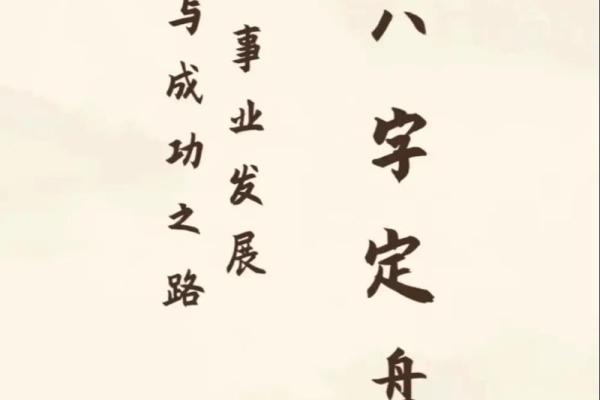 八字定舟
事业发展
与成功之路